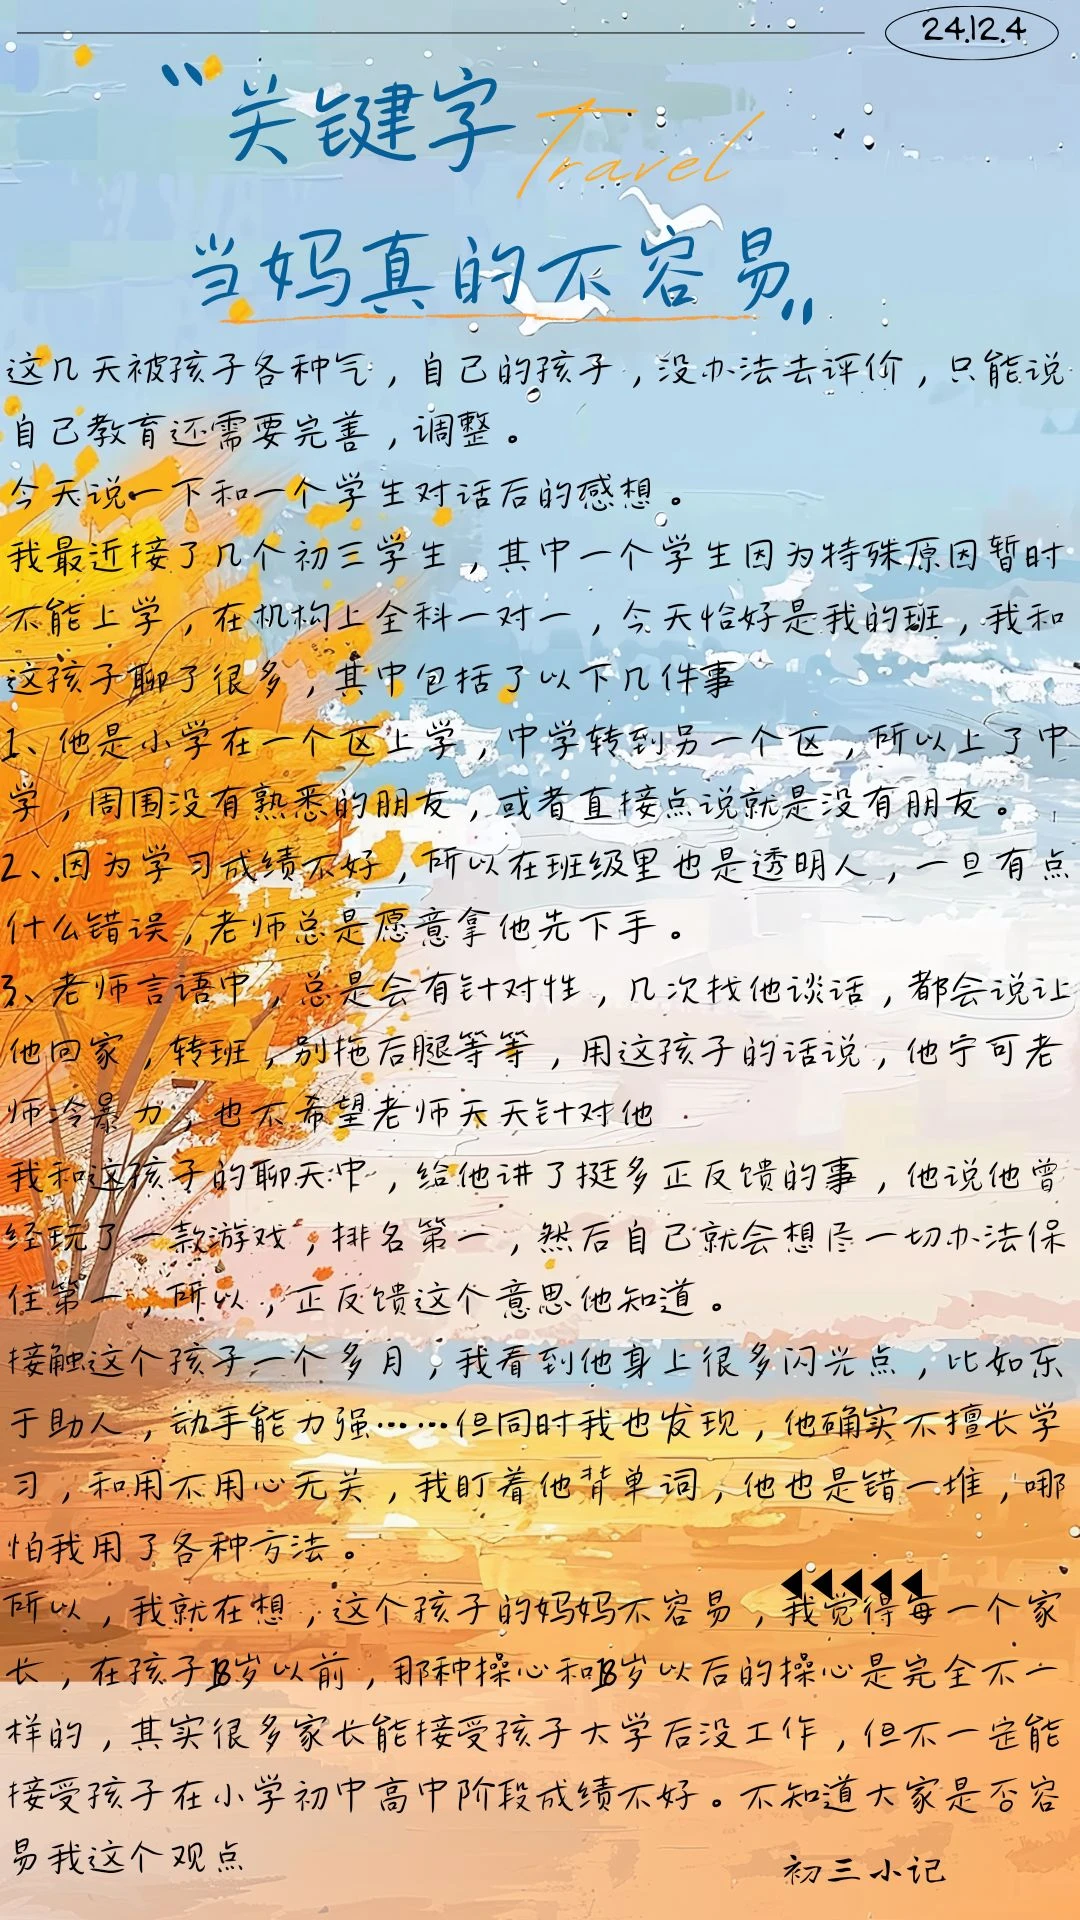 24.12.4
“关键字
Travel
当妈真的不容易”
这几天被孩子各种气，自己的孩子，没办法去评价，只能说
自己教育还需要完善，调整。
今天说一下和一个学生对话后的感想。
我最近接了几个初三学生，其中一个学生因为特殊原因暂时
不能上学，在机构上全科一对一，今天恰好是我的班，我和
这孩子聊了很多，其中包括了以下几件事
1、他是小学在一个区上学，中学转到另一个区，所以上了中
学，周围没有熟悉的朋友，或者直接点说就是没有朋友。
2、因为学习成绩不好，所以在班级里也是透明人，一旦有点
什么错误，老师总是愿意拿他先下手。
3、老师言语中，总是会有针对性，几次找他谈话，都会说让
他回家，转班，别拖后腿等等，用这孩子的话说，他宁可老
师冷暴力，也不希望老师天天针对他
我和这孩子的聊天中，给他讲了挺多正反馈的事，他说他曾
经玩了一款游戏，排名第一，然后自己就会想尽一切办法保
住第一，所以，正反馈这个意思他知道。
接触这个孩子一个多月，我看到他身上很多闪光点，比如乐
于助人，动手能力强……但同时我也发现，他确实不擅长学
习，和用不用心无关，我盯着他背单词，他也是错一堆，哪
怕我用了各种方法。
所以，我就在想，这个孩子的妈妈不容易，我觉得每一个家
长，在孩子18岁以前，那种操心和18岁以后的操心是完全不一
样的，其实很多家长能接受孩子大学后没工作，但不一定能
接受孩子在小学初中高中阶段成绩不好。不知道大家是否容
易我这个观点
初三小记